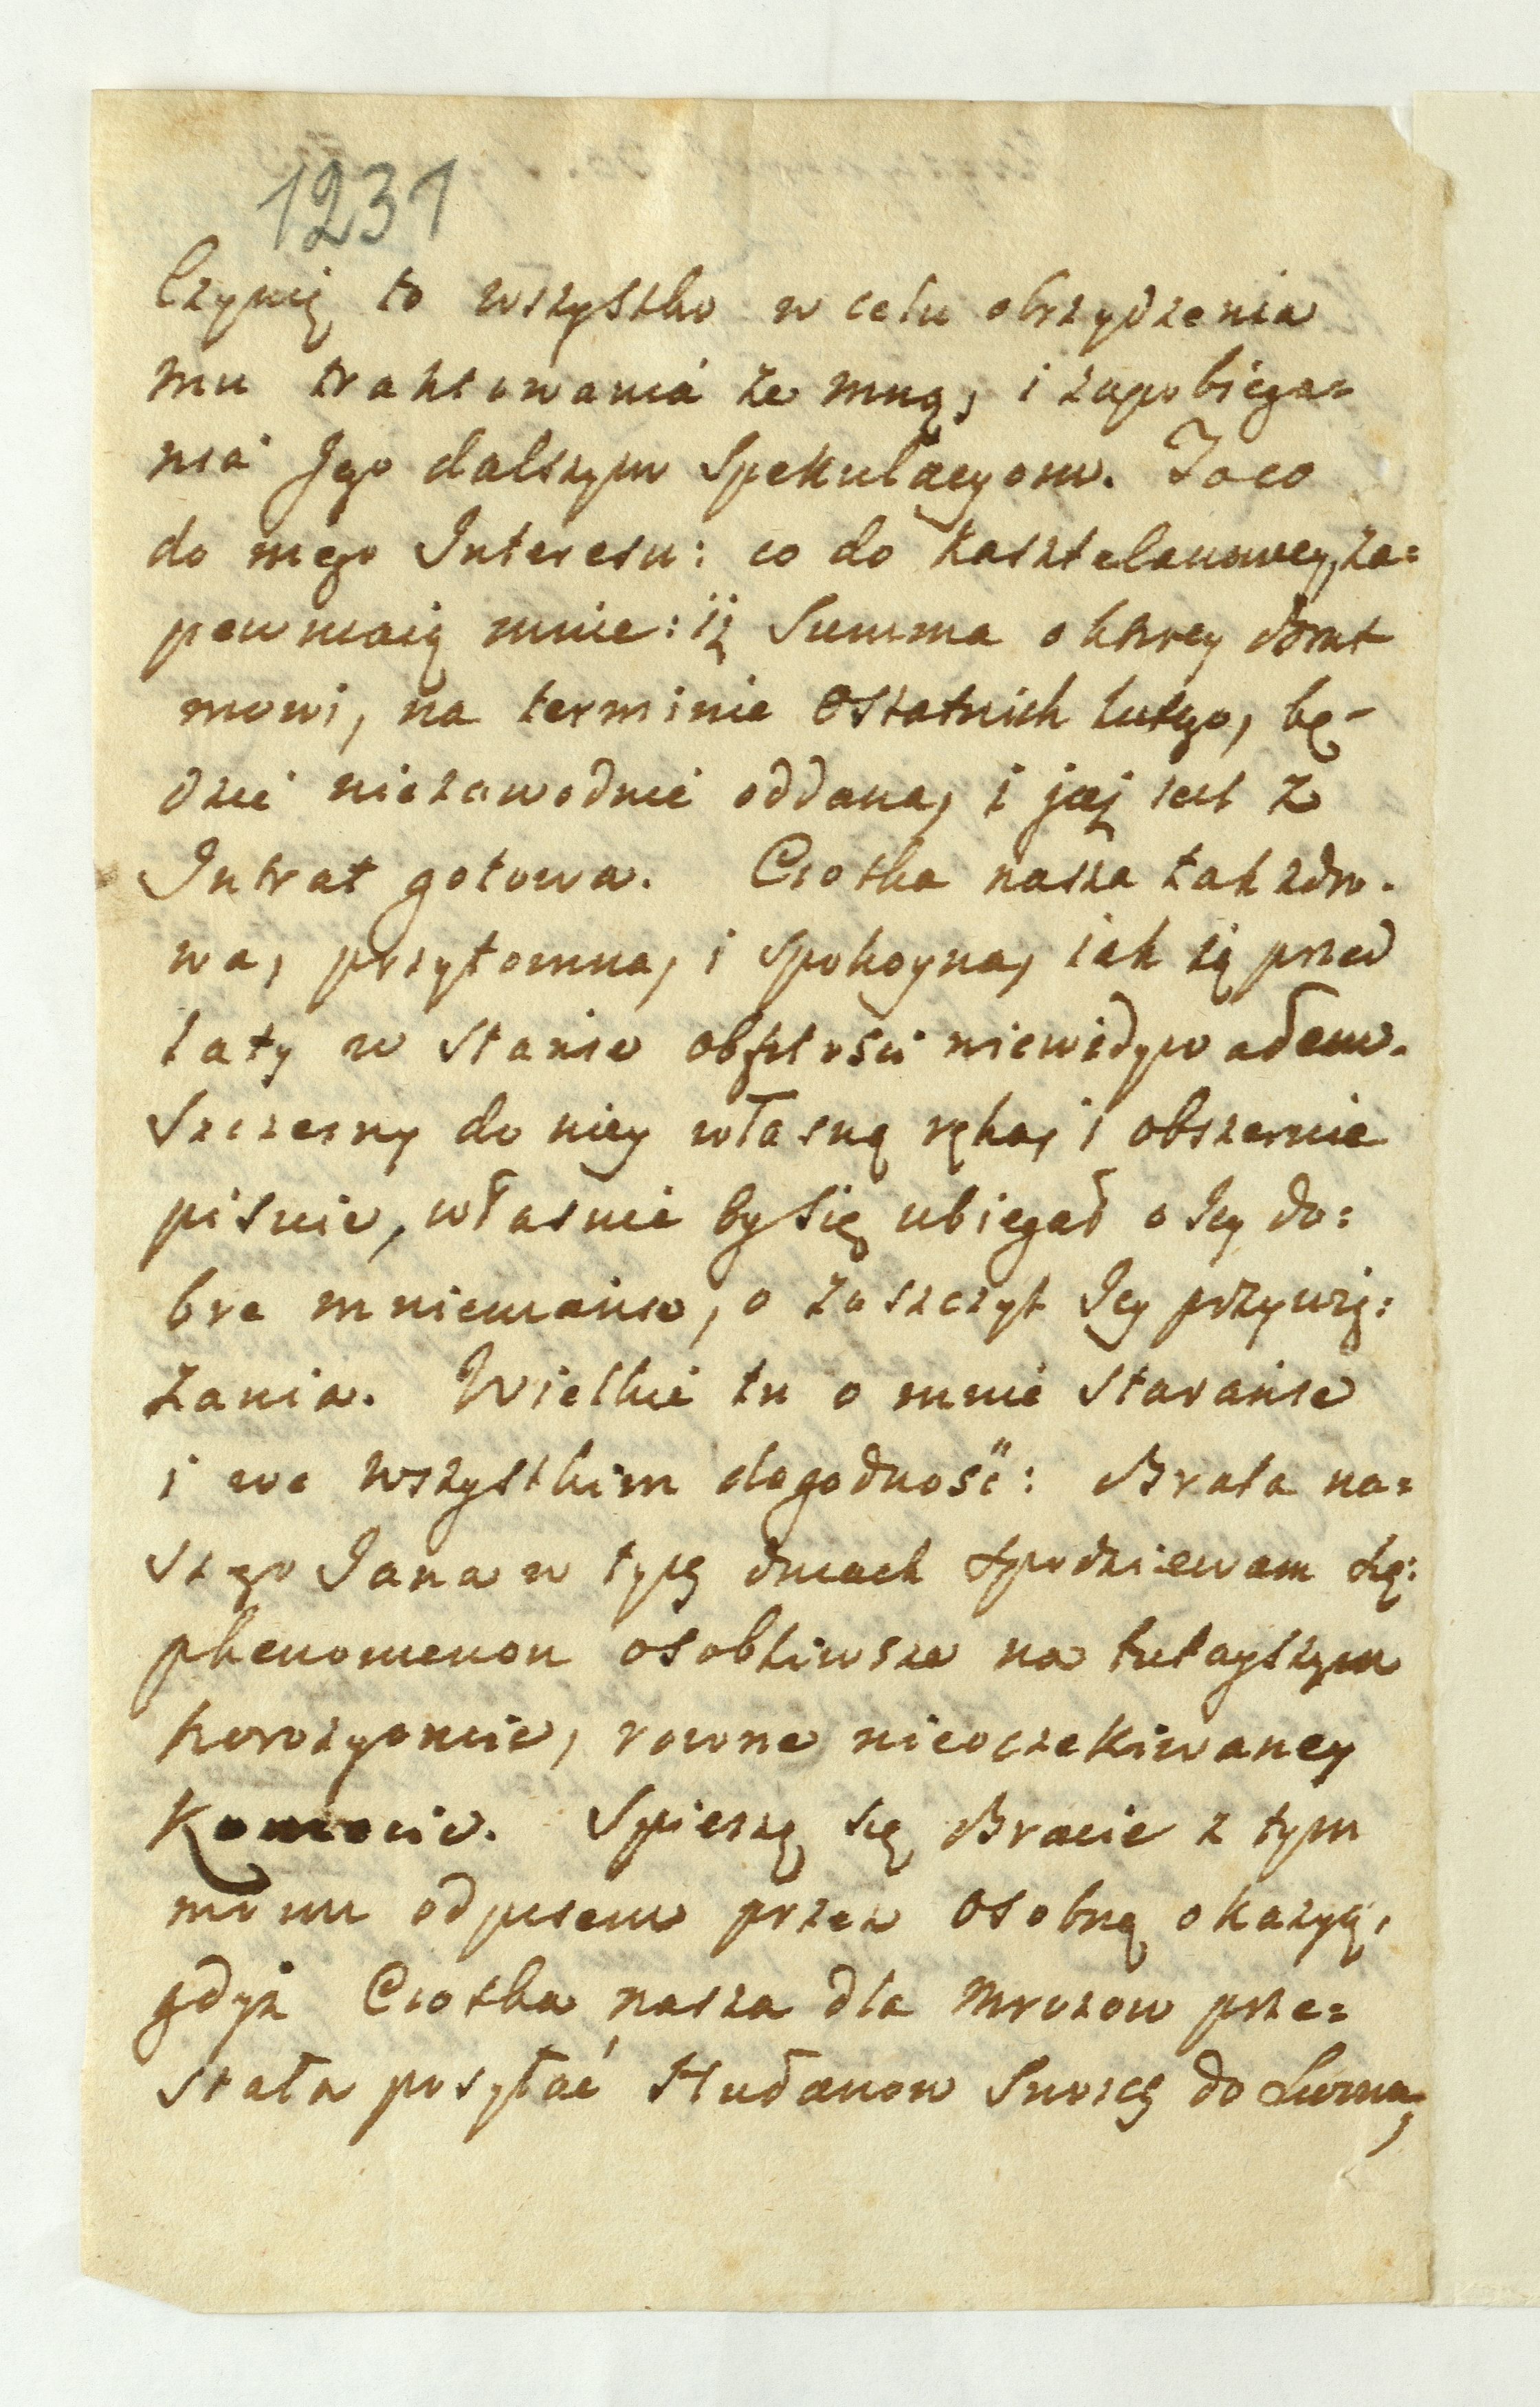 1231
Czynię to wszystko w celu obrzydzenia
mu traktowania ze mną, i zapobiega=
nia Jego dalszym Spekulacyom. To co
do mego Interesu: co do Kasztelanowey, za=
pewniaią mnie: iż Summa o ktorey Brat
mowi, na terminie Ostatnich lutego, bę-
dzie niezawodnie oddana, i jej iest z
Intrat gotowa. Ciotka nasza tak zdro-
wa, przytomna, i spokoyna, iak ią przed
laty w stanie obfitości niewidywałem.
Szczesny do niey własną ręką, i obszernie
pisuie, własnie by się ubiegał o Jey do=
bre mniemanie, o zaszczyt Jey przywią=
zania. Wielkie tu o mnie staranie
i we wszystkim dogodność: Brata na=
szego Jana w tych dniach spodziewam się:
phenomenon osobliwsze na tutayszym
horozyoncie, rowne nieoczekiwaney
Komecie. Spieszę się Bracie z tym
moim odpisem przez osobną okazyą,
gdyż Ciotka nasza dla mrozow prze=
stała posyłać Hułanow Swoich do Lwowa,